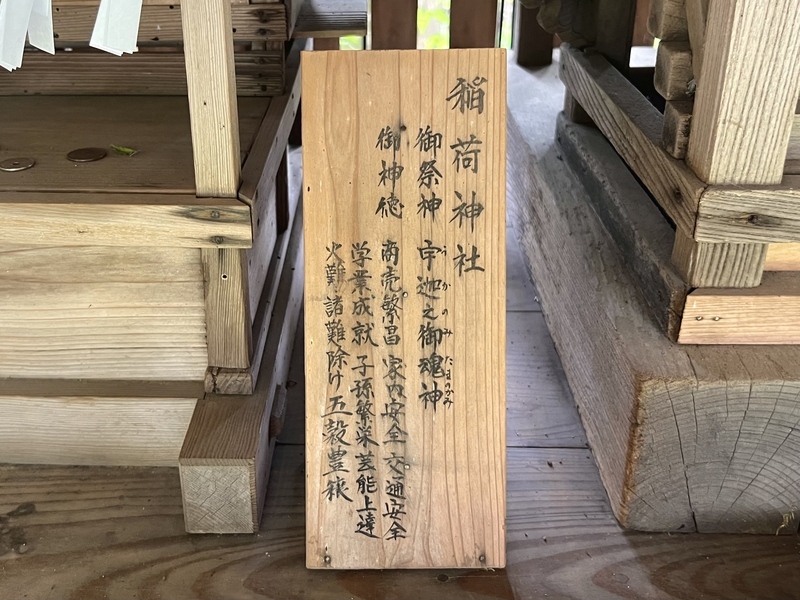 稲荷神社
御祭神 宇迦之御魂神
うかのみたまのかみ
御神徳 商売繁昌 家内安全 交通安全
学業成就 子孫繁栄 芸能上達
火難・諸難除け 五穀豊穣